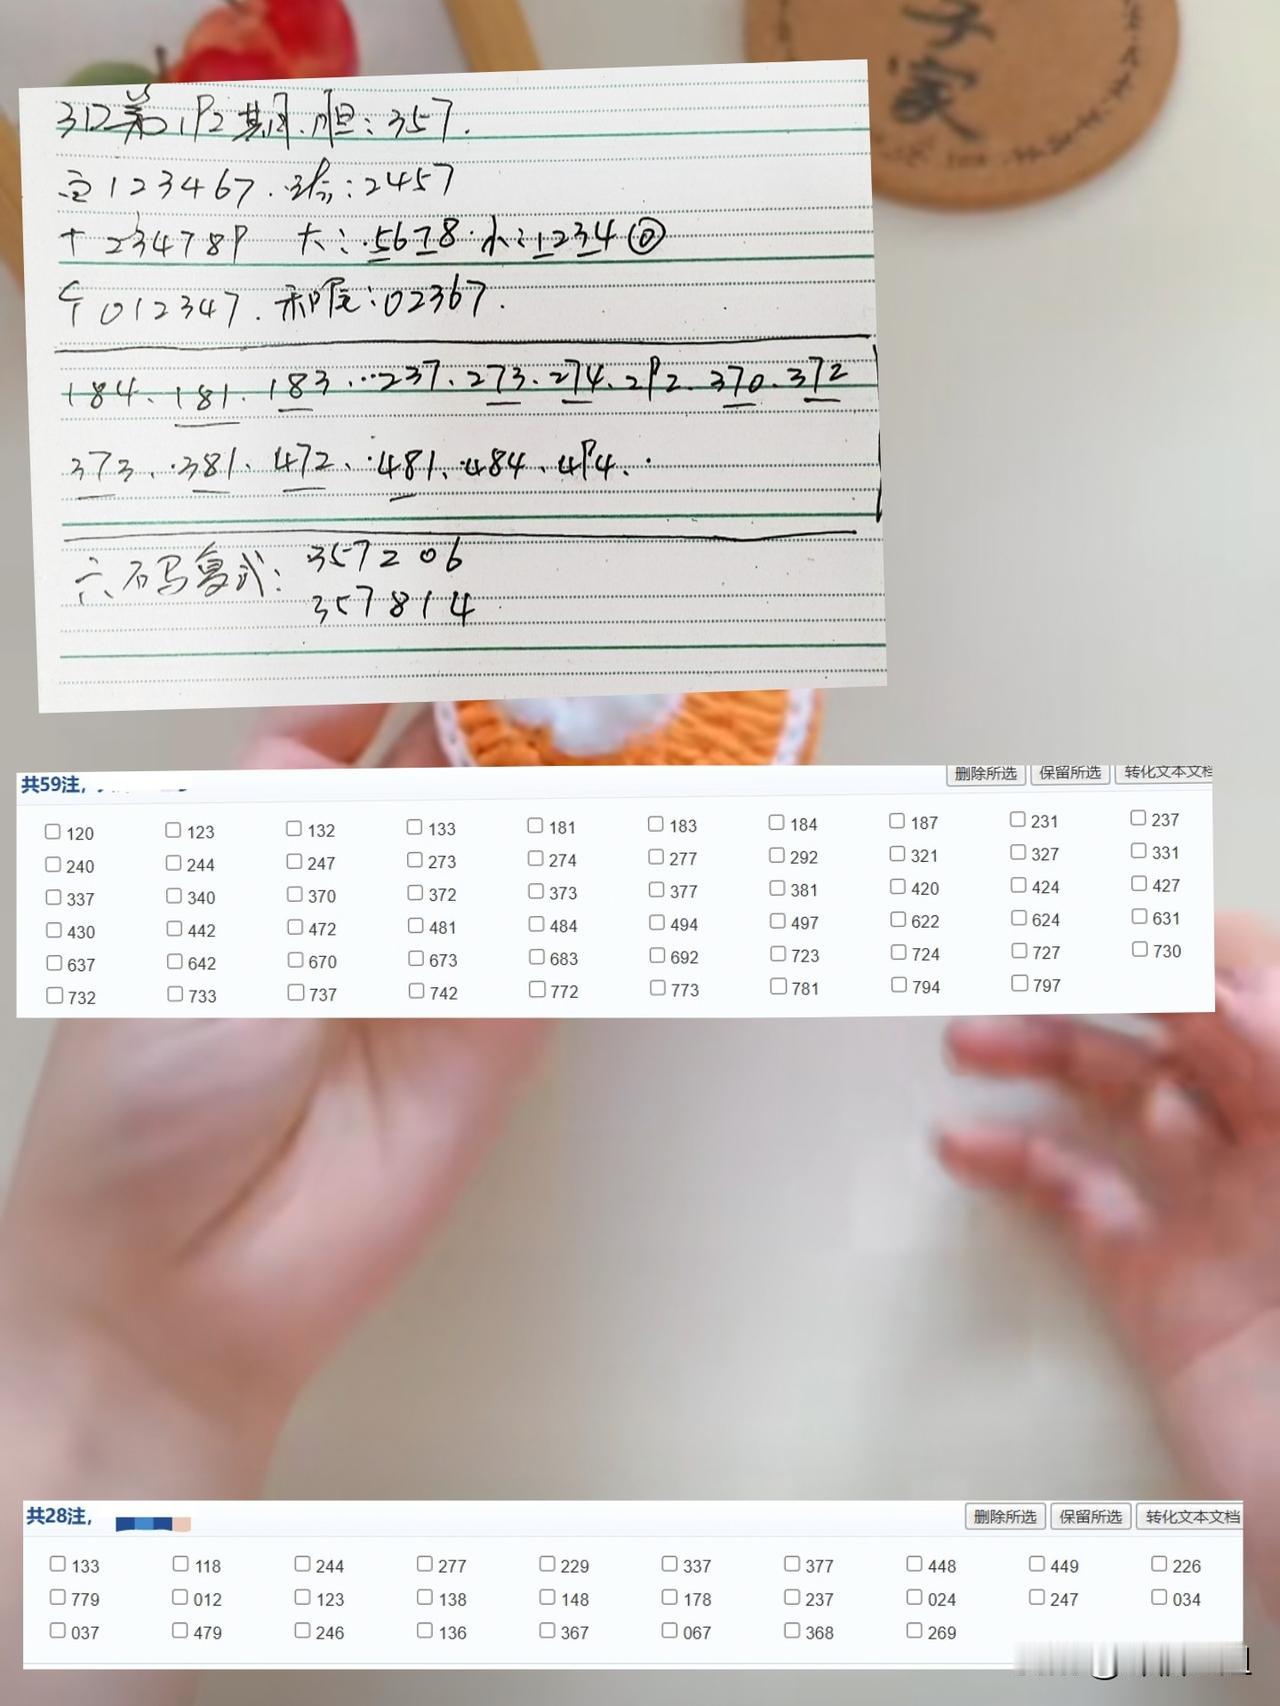 家
3D第192期.胆:357.
百123467.跨:2457
十234789 大:5678.小:1234⓪
个012347.和尾:02367.
184.181.183.237.273.274.292.370.372
373.381.472.481.484.494.
六码复式:357206
357814
共59注,
删除所选 保留所选 转化文本文档
120 123 132 133 181 183 184 187 231 237
240 244 247 273 274 277 292 321 327 331
337 340 370 372 373 377 381 420 424 427
430 442 472 481 484 494 497 622 624 631
637 642 670 673 683 692 723 724 727 730
732 733 737 742 772 773 781 794 797
共28注,
删除所选 保留所选 转化文本文档
133 118 244 277 229 337 377 448 449 226
779 012 123 138 148 178 237 024 247 034
037 479 246 136 367 067 368 269